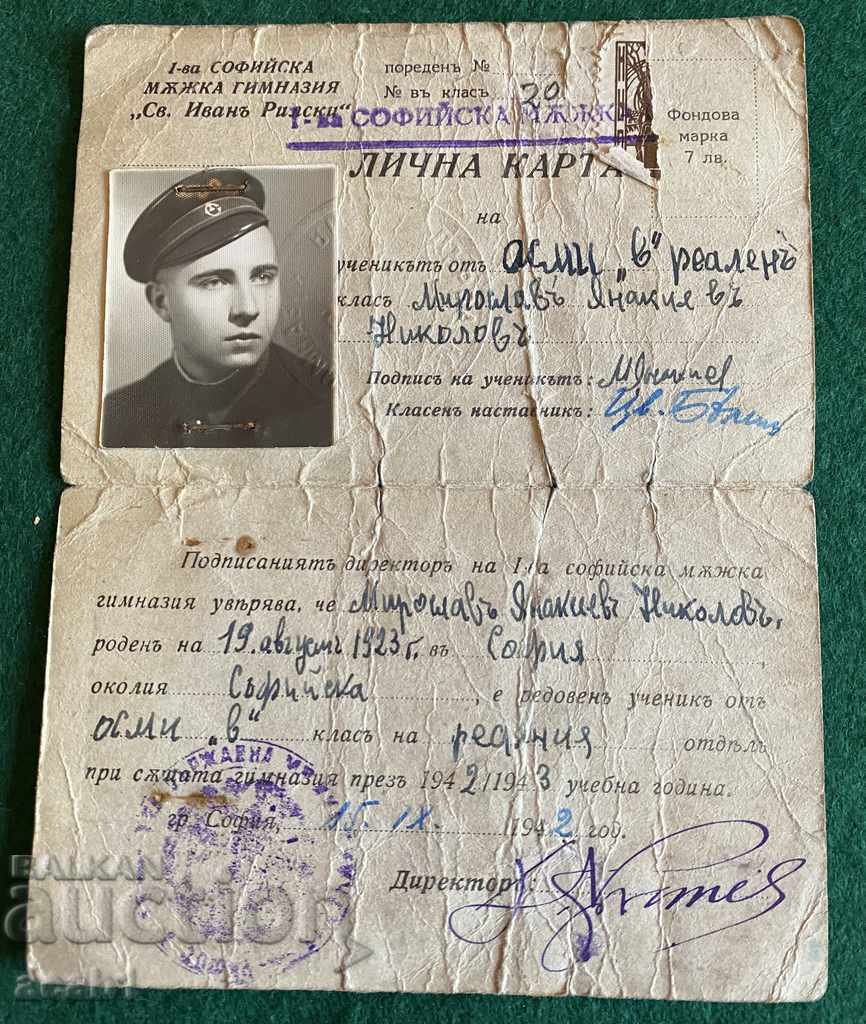 I-ва СОФИЙСКА
МѪЖКА ГИМНАЗИЯ
„Св. Иванъ Рилски“
пореденъ №
№ въ класъ 20
I-ва СОФИЙСКА МѪЖКА
Фондова
марка
7 лв.
ЛИЧНА КАРТА
на
ученикътъ отъ осми „в“ реаленъ
класъ Мирославъ Янакиевъ
Николовъ
Подпись на ученикътъ:
Класенъ настасникъ: Цв.
Подписаниятъ директоръ на I-ва софийска мѫжка
гимназия увѣрява, че Мирославъ Янакиевъ Николовъ,
роденъ на 19. августъ 1923 г. въ София,
околия Софийска, е редовенъ ученикъ отъ
осми „в“ класъ на реалния отдѣлъ
при сѫщата гимназия презъ 1942/1943 учебна година.
гр. София, 15. IX. 1942 год.
Директоръ:
BALKAN
auction